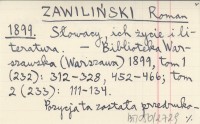 ZAWILIŃSKI Roman
1899. Słowacy, ich życie i li-
teratura. — Biblioteka War-
szawska (Warszawa) 1899, tom 1
(232): 312-328, 452-466; tom
2 (233): 111-134.
Pozycja ta została przedruko-